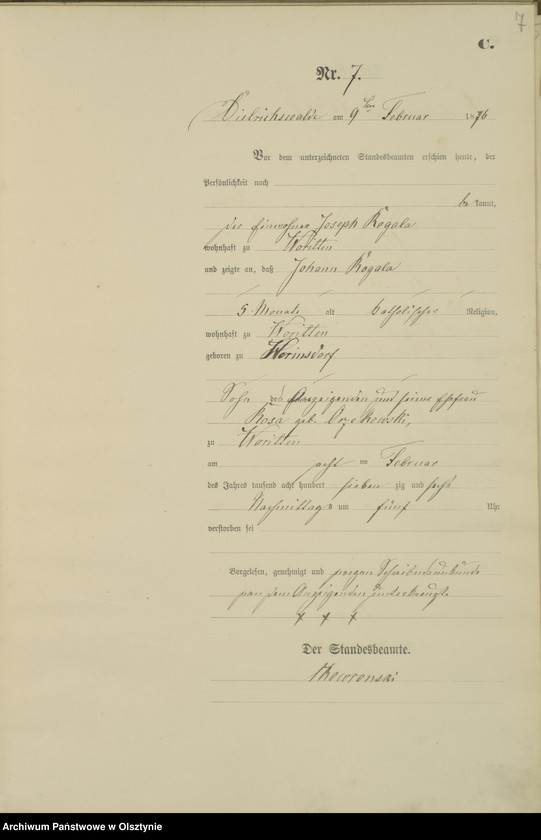 7
C.
Nr. 7.
Dietrichswalde am 9ten Februar 1876
Vor dem unterzeichneten Standesbeamten erschien heute, der
Persönlichkeit nach
be kannt,
der Einwohner Joseph Rogala
wohnhaft zu Woritten
und zeigte an, daß Johann Rogala
5 Monate alt katholischer Religion,
wohnhaft zu Woritten
geboren zu
Sohn des Anzeigenden und seine Ehefrau
Rosa geb. Orzekowski,
zu Woritten
am acht Februar
des Jahres tausend acht hundert sieben zig und sechs
Nachmittags um fünf Uhr
verstorben sei
Vorgelesen, genehmigt und wegen
von dem Anzeigenden unterkreuzt
+ + +
Der Standesbeamte.
Archiwum Państwowe w Olsztynie